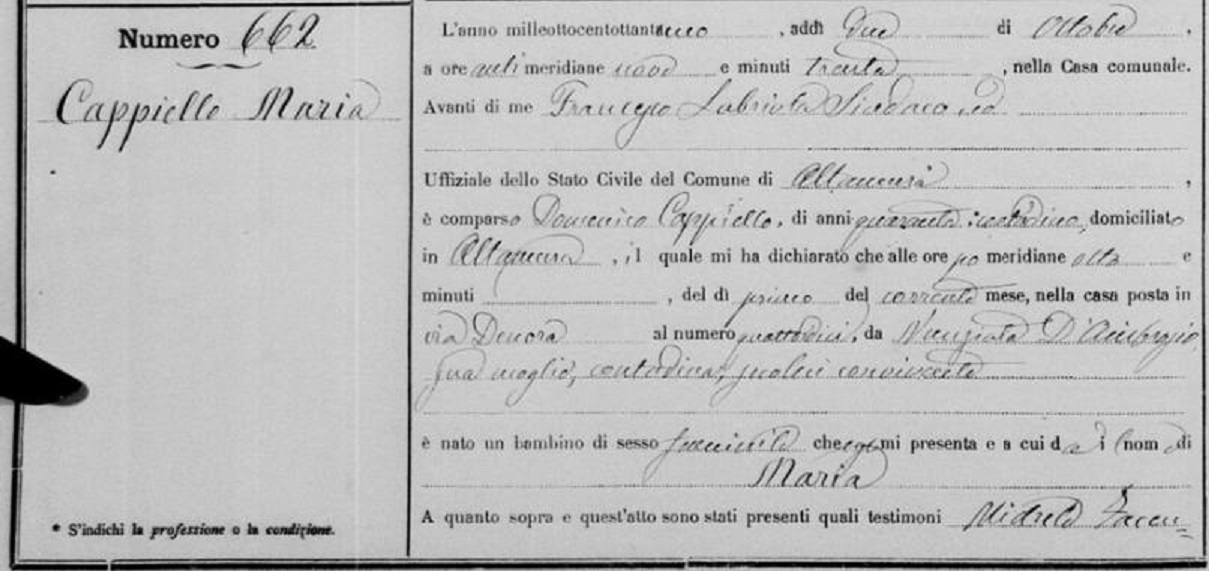 Numero 662
Cappiello Maria
* S'indichi la professione o la condizione.
L'anno milleottocentottantuno, addì due di Ottobre,
a ore anti meridiane nove e minuti trenta, nella Casa comunale.
Avanti di me Francesco Labriola Sindaco ed
Uffiziale dello Stato Civile del Comune di Altamura,
è comparso Domenico Cappiello, di anni quaranta, contadino, domiciliato
in Altamura, il quale mi ha dichiarato che alle ore po meridiane otto e
minuti , del dì primo del corrente mese, nella casa posta in
via Denora al numero quattordici, da Nunziata D'Ambrogio
sua moglie, contadina, secolui convivente
è nato un bambino di sesso femminile che egli mi presenta e a cui dà il nome di
Maria
A quanto sopra e quest'atto sono stati presenti quali testimoni Michele